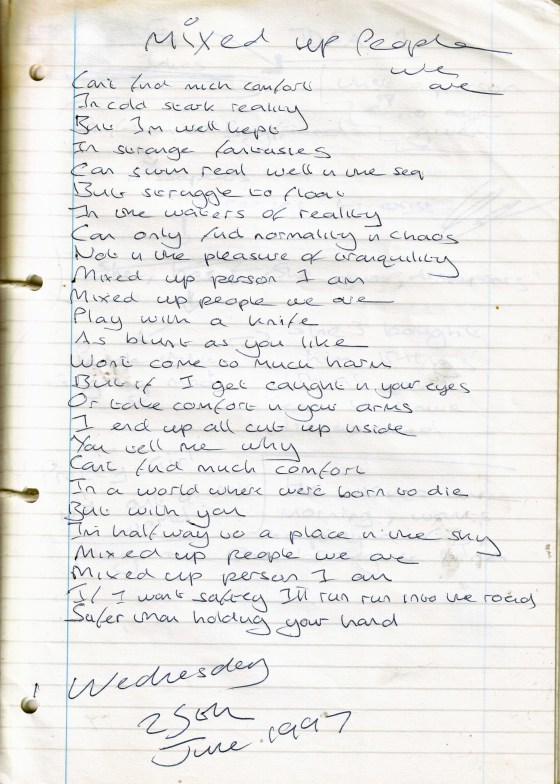 Mixed up People
we are
Can't find much comfort
In cold stark reality
But I'm well kept
In strange fantasies
Can swim real well in the sea
But struggle to float
In the waters of reality
Can only find normality in chaos
Not in the pleasure of tranquility
Mixed up person I am
Mixed up people we are
Play with a knife
As blunt as you like
Won't come to much harm
But if I get caught in your eyes
Or take comfort in your arms
I end up all cut up inside
You tell me why
Can't find much comfort
In a world where we're born to die
But with you
I'm halfway to a place in the sky
Mixed up people we are
Mixed up person I am
If I want safety I'll run run into the road
Safer than holding your hand
Wednesday
25th
June 1997